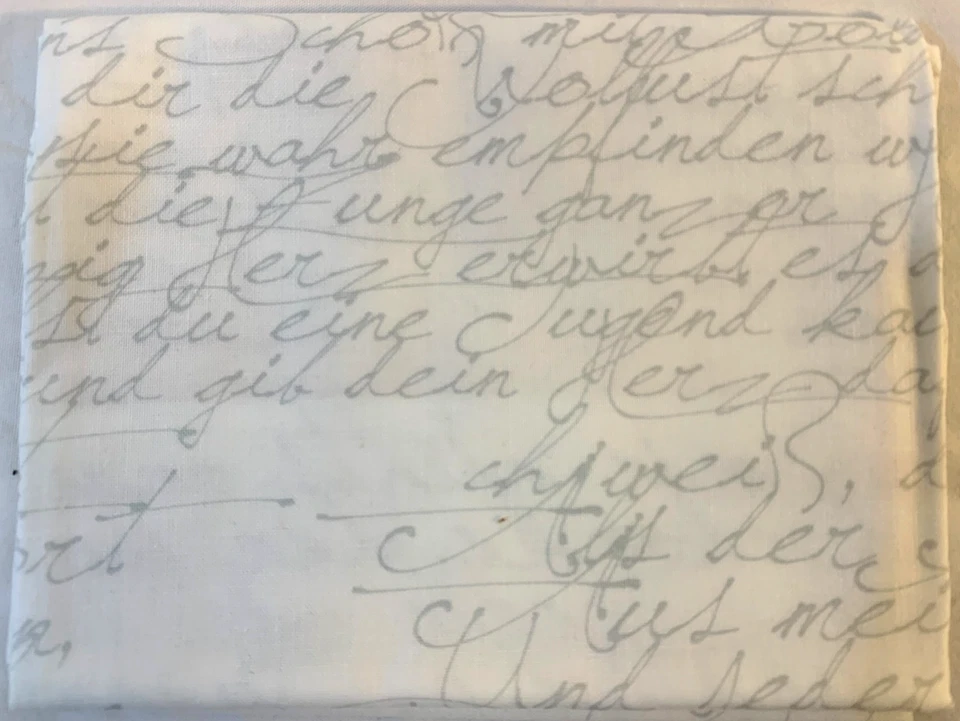 ns Schon mitgeboren
dir die Wollust sch
sie wahr empfinden w
die Zunge ganz er
zig Herz erwirb es
st du eine Jugend kau
und gib dein Herz da
ch weiß, d
ort Als der
n, Aus mei
Und jeder